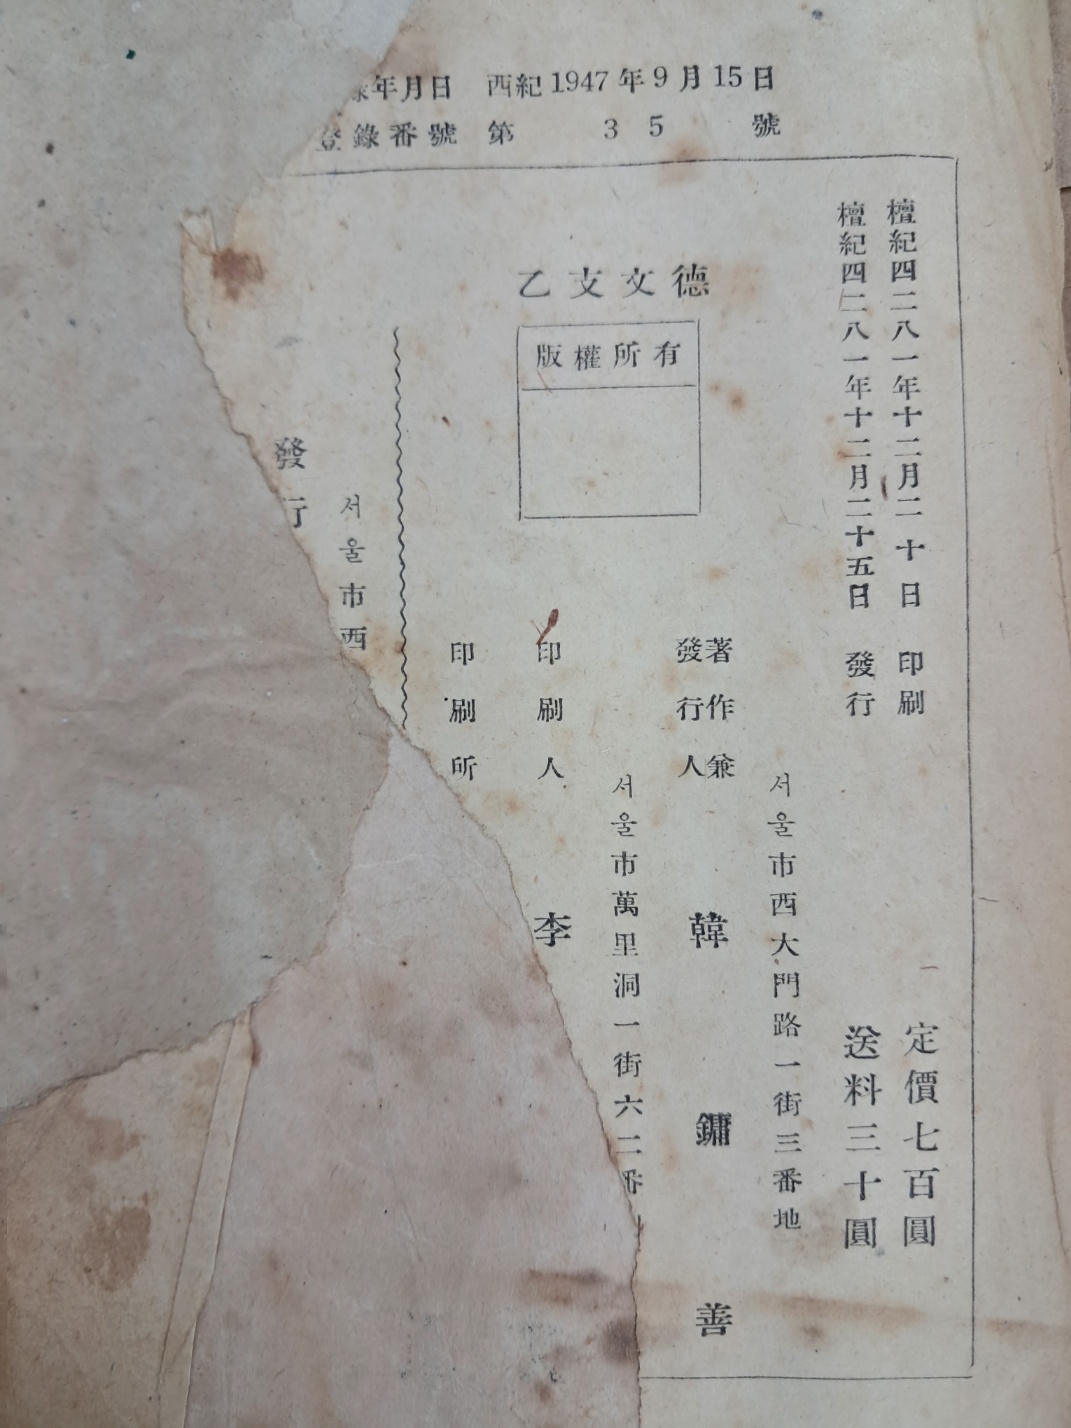 年月日 西紀1947年9月15日
登錄番號 第 35 號
檀紀四二八一年十二月二十日 印刷
檀紀四二八一年十二月二十五日 發行
定價七百圓
送料三十圓
乙支文德
版權所有
서울市西大門路一街三番地
著作兼
發行人 韓鏞善
서울市萬里洞一街六二番
印刷人 李
印刷所
서울市西
發行